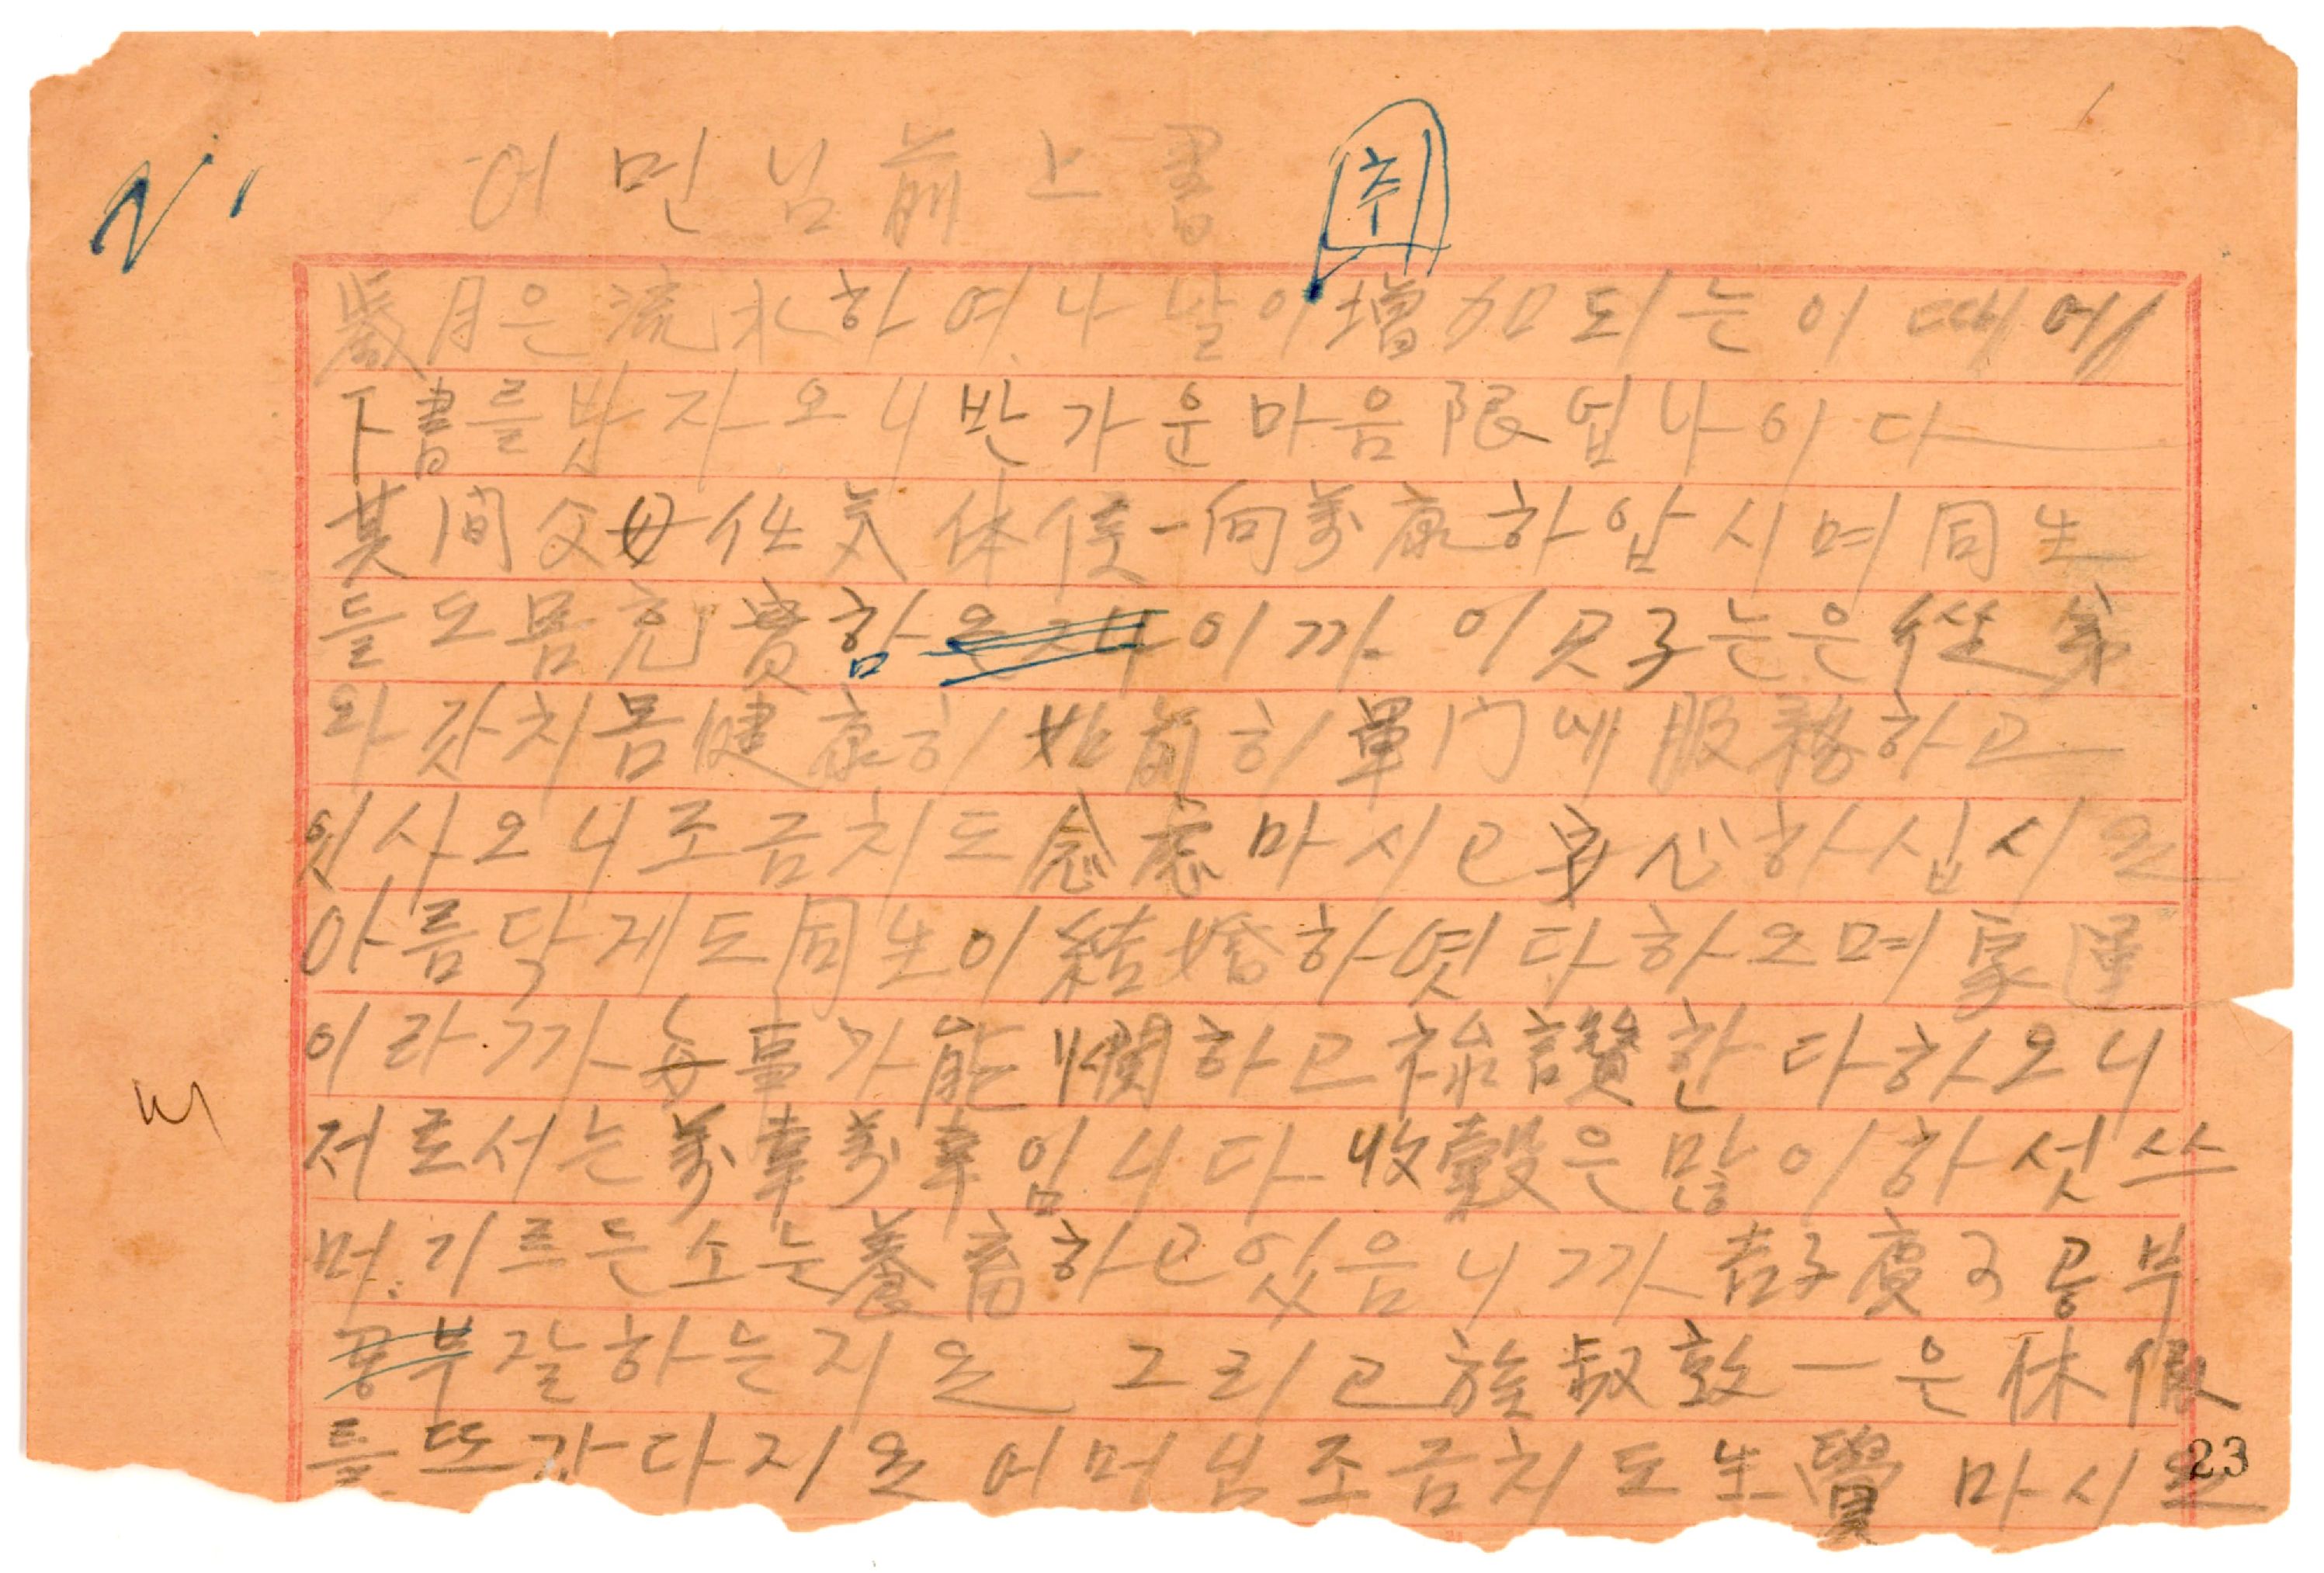 어먼님前上書
추
歲月은流水하여나달이增加되는이때에
下書를밧자오니반가운마음限업나이다
其間父母任気体候一向萬康하압시며同生
들도몸充實함 이까 이곳子는은從弟
와갓치몸健康히如前히軍门에服務하고
잇사오니조금치도念慮마시고安心하십시요
아름답게도同生이結婚하엿다하오며家運
이라까每事가能爛하고 讚한다하오니
저로서는萬幸萬幸임니다 收穀은많이하섯쓰
며 기르든소는養畜하고있음니까 공부
공부 잘하는지요 그리고族叔敦一은休假
를또갓다지요 어머님조금치도生覺 마시요
23